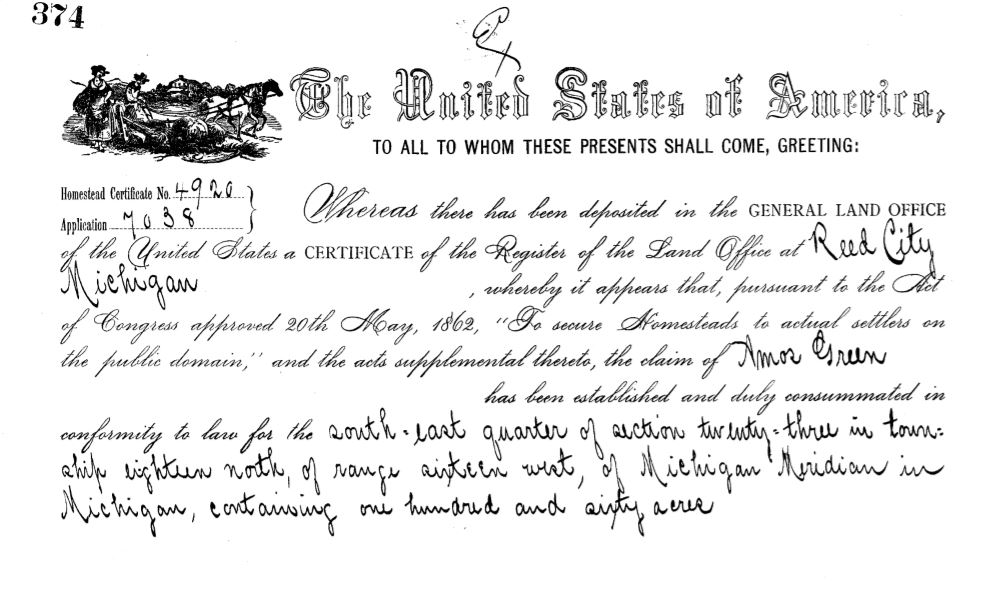 374
The United States of America,
TO ALL TO WHOM THESE PRESENTS SHALL COME, GREETING:
Homestead Certificate No. 4920
Application 7038
Whereas there has been deposited in the GENERAL LAND OFFICE
of the United States a CERTIFICATE of the Register of the Land Office at Reed City
Michigan , whereby it appears that, pursuant to the Act
of Congress approved 20th May, 1862, "To secure Homesteads to actual settlers on
the public domain," and the acts supplemental thereto, the claim of Amos Green
has been established and duly consummated in
conformity to law for the south-east quarter of section twenty-three in town-
ship eighteen north, of range sixteen west, of Michigan Meridian in
Michigan, containing one hundred and sixty acres